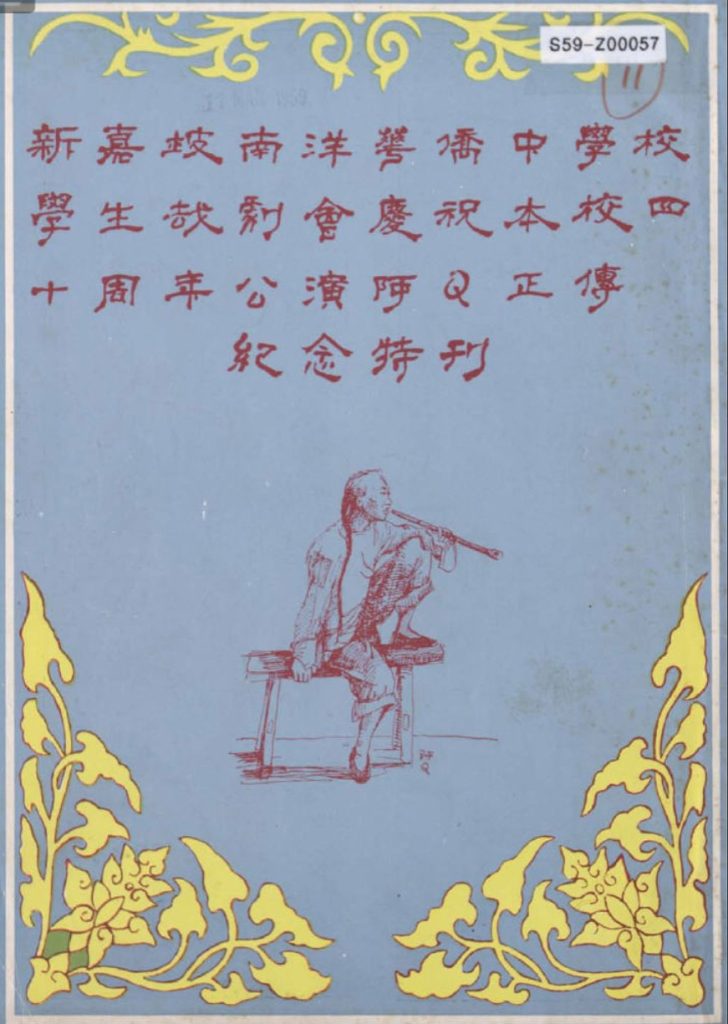 S59-Z00057
11
新嘉坡南洋華僑中學校
學生戲劇會慶祝本校四
十周年公演阿Q正傳
紀念特刊
阿Q